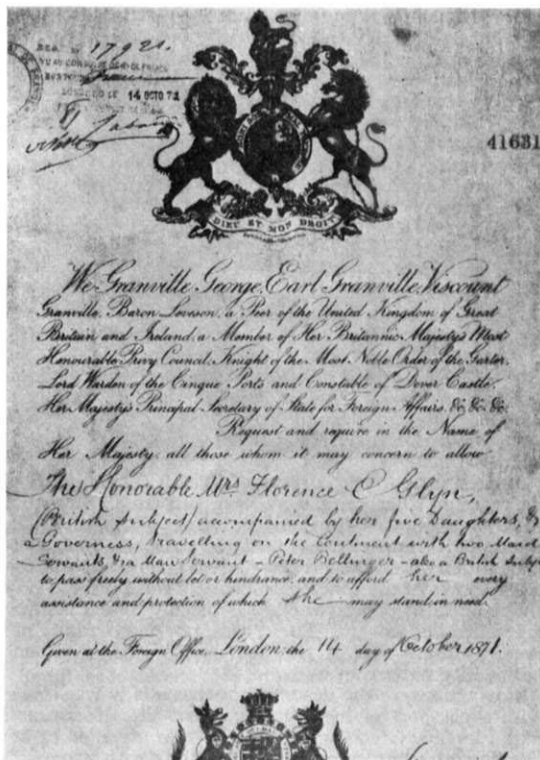 17921.
14 OCTO 71
41631
DIEU ET MON DROIT
We Granville George, Earl Granville, Viscount
Granville, Baron Leveson, a Peer of the United Kingdom of Great
Britain and Ireland, a Member of Her Britannic Majesty's Most
Honourable Privy Council, Knight of the Most Noble Order of the Garter,
Lord Warden of the Cinque Ports and Constable of Dover Castle,
Her Majesty's Principal Secretary of State for Foreign Affairs, &c. &c. &c.
Request and require in the Name of
Her Majesty, all those whom it may concern to allow
The Honorable Mrs Florence C Glyn,
(British Subject) accompanied by her five Daughters, &
a Governess, travelling on the Continent with two Maid
Servants, & a Man Servant - Peter Bellinger - also a British Subject
to pass freely without let or hindrance, and to afford her every
assistance and protection of which she may stand in need.
Given at the Foreign Office, London, the 14 day of October 1871.